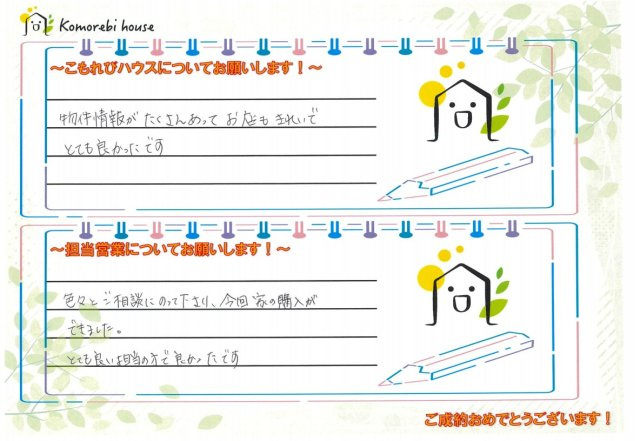 Komorebi house
～こもれびハウスについてお願いします！～
物件情報がたくさんあって お店もきれいで
とても良かったです
～担当営業についてお願いします！～
色々とご相談にのって下さり、今回 家の購入が
できました。
とても良い担当の方で良かったです
ご成約おめでとうございます！